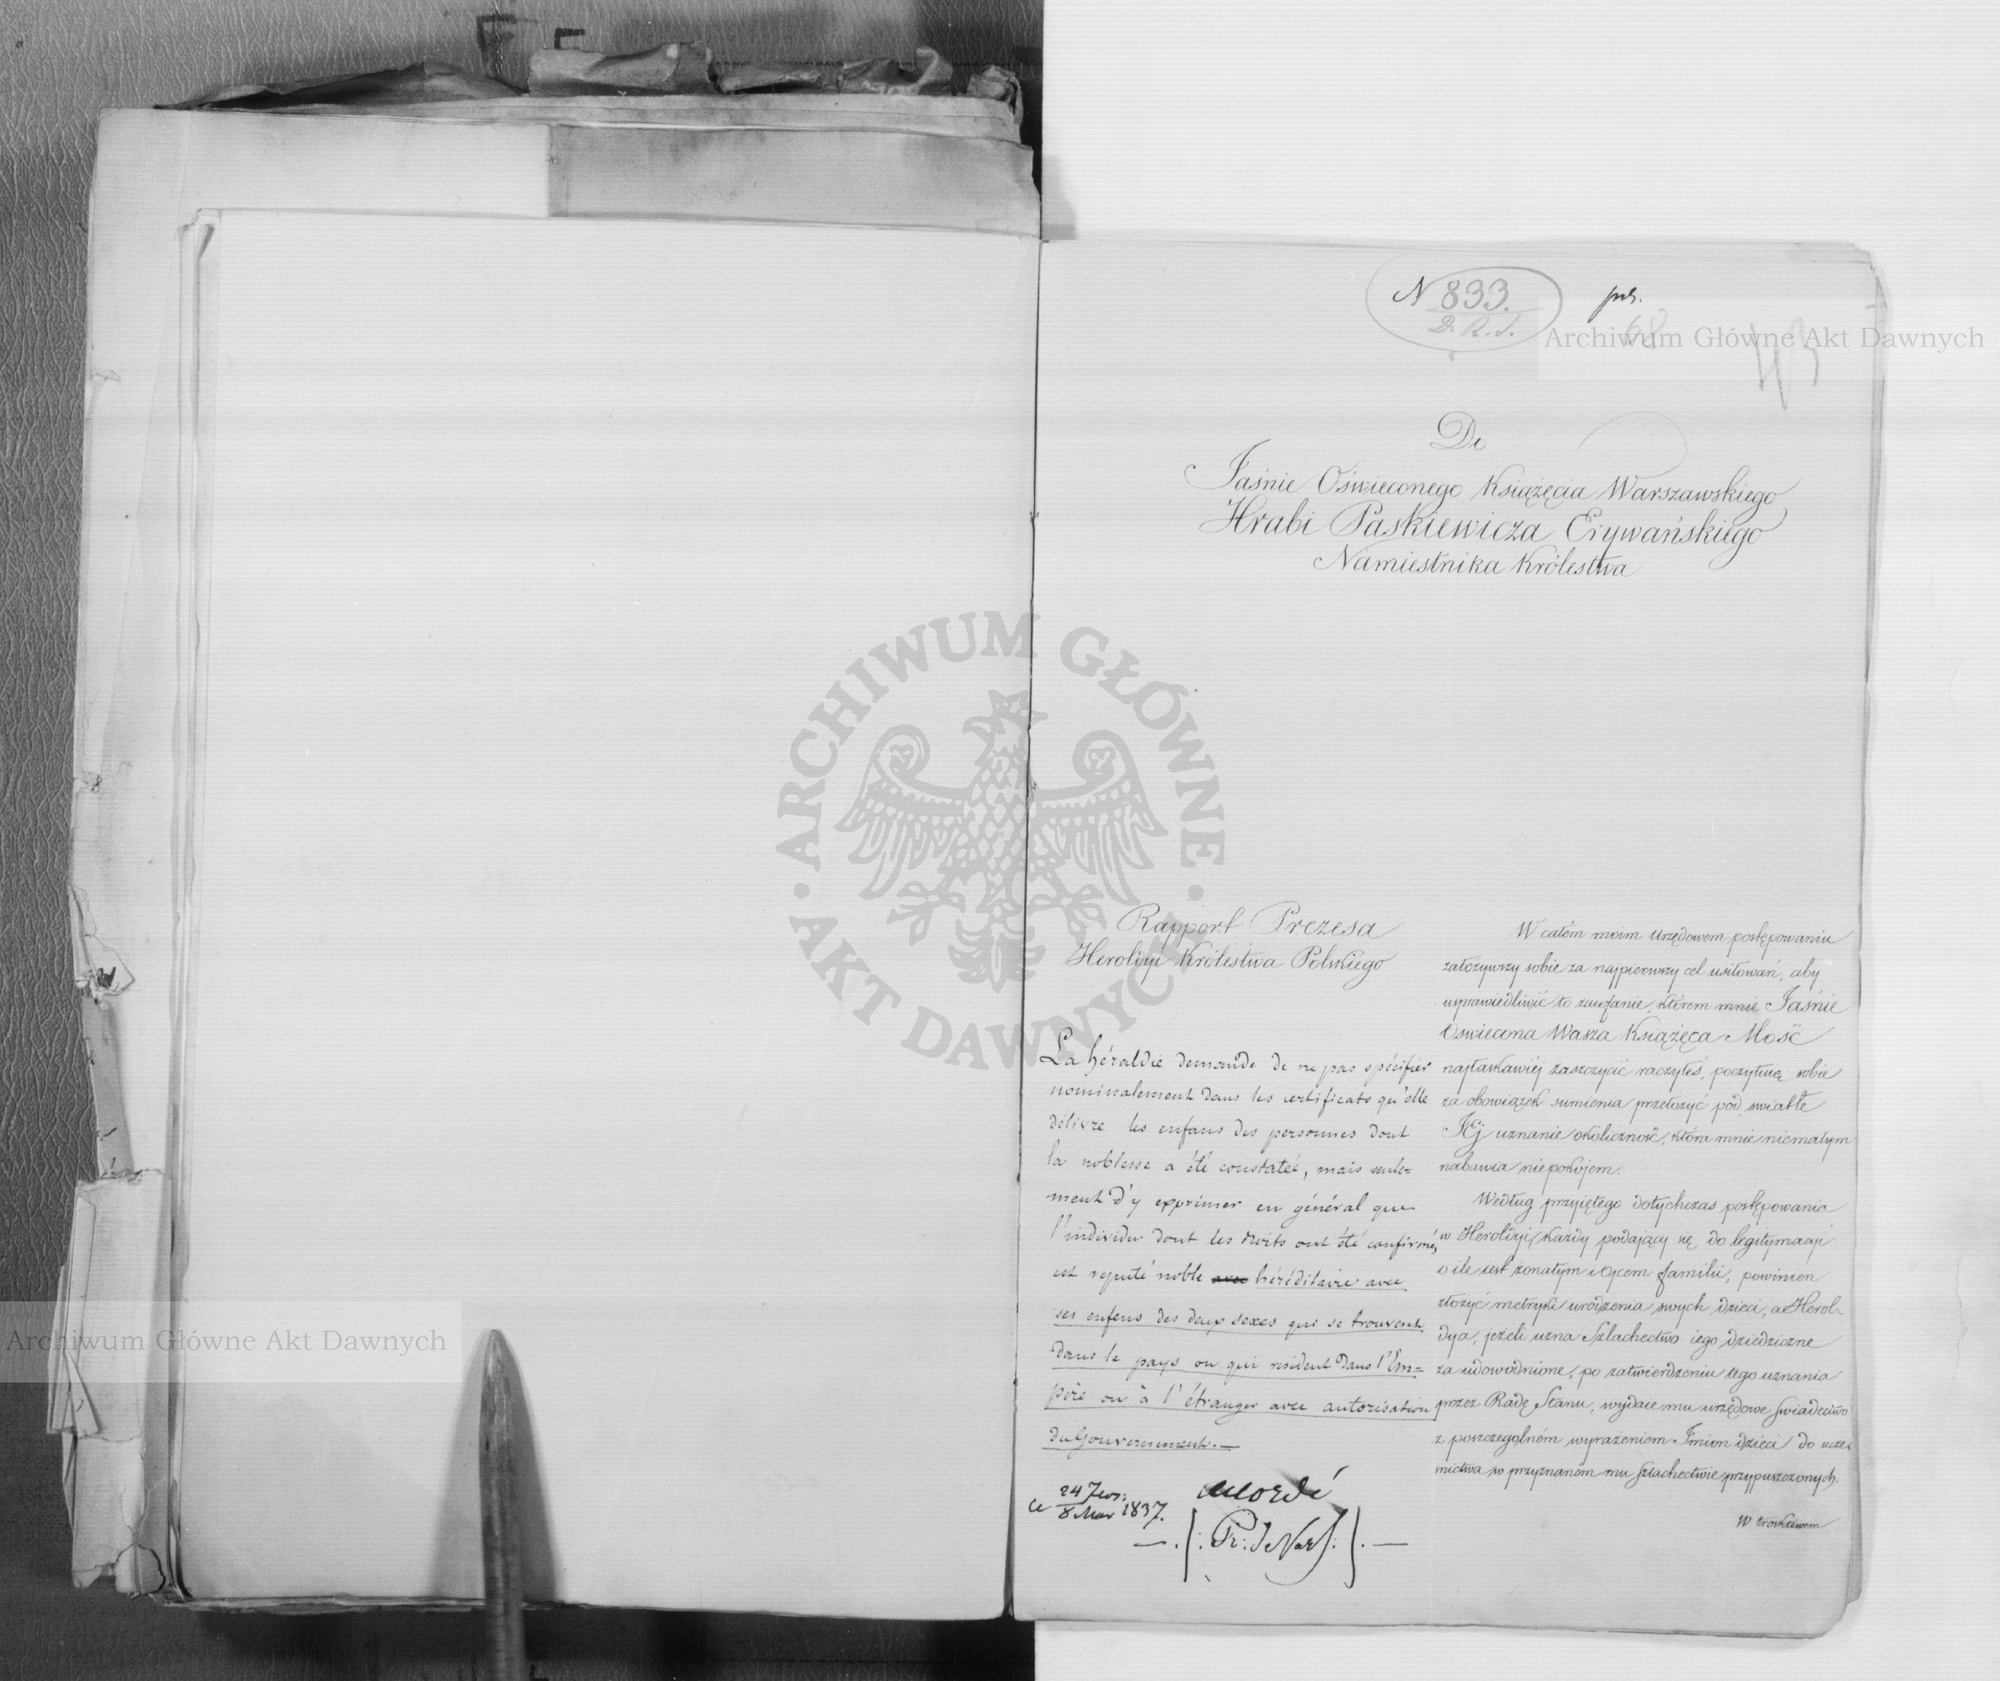 N 833.
D. R. S.
68
43
Do
Jaśnie Oświeconego Książęcia Warszawskiego
Hrabi Paskiewicza Erywańskiego
Namiestnika Królestwa
Rapport Prezesa
Heroldyi Królestwa Polskiego
La héraldie demande de ne pas spécifier
nominalement dans les certificats qu'elle
délivre les enfans des personnes dont
la noblesse a été constatée, mais seule=
ment d'y exprimer en général que
l'individu dont les droits ont été confirmés,
est reputé noble avec héréditaire avec
ses enfens des deux sexes qui se trouvent
dans le pays ou qui resident dans l'Em=
pire ou à l'étranger avec autorisation
du Gouvernement. —
Ce 24 Fevr: / 8 Mar 1837.
W całém moim urzędowem postępowaniu
założywszy sobie za najpierwszy cel usiłowań, aby
usprawiedliwić to zaufanie, którem mnie Jaśnie
Oświecona Wasza Książęca Mość
najłaskawiéj zaszczycić raczyłeś, poczytuię sobie
za obowiązek sumienia przełożyć pod światłe
Jéj uznanie okoliczność, która mnie niemałym
nabawia niepokojem.
Według przyiętego dotychczas postępowania
w Heroldyi, każdy podający się do legitymacyi
o ile iest żonatym i Oycem familii, powinien
złożyć metryki urodzenia swych dzieci, a Herol-
dya, jeżeli uzna Szlachectwo iego dziedziczne
za udowodnione, po zatwierdzeniu tego uznania
przez Radę Stanu, wydaie mu urzędowe świadectwo
z poszczególném wyrażeniem Imion dzieci do ucze-
nictwa w przyznaném mu Szlachectwie przypuszczonych.
W troskliwem
Archiwum Główne Akt Dawnych
Archiwum Główne Akt Dawnych
ARCHIWUM GŁÓWNE
AKT DAWNYCH